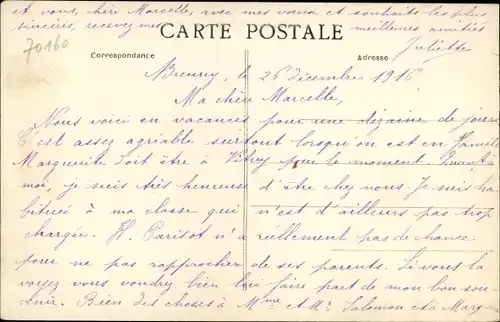 et vous, chère Marcelle, avec mes vœux et souhaits les plus
sincères, recevez mes meilleures amitiés
Juliette
CARTE POSTALE
70160
Correspondance
Adresse
Breurey, le 26 décembre 1916
Ma chère Marcelle,
Nous voici en vacances pour une dizaine de jours
C'est assez agréable surtout lorsqu'on est en famille
Marguerite doit être à Vitrey pour le moment. Quant à
moi, je suis très heureuse d'être chez nous. Je suis ha
bituée à ma classe qui n'est d'ailleurs pas trop
chargée. H. Parisot n'a réellement pas de chance
pour ne pas rapprocher de ses parents. Si vous la
voyez vous voudrez bien lui faire part de mon bon sou-
venir. Bien des choses à Mme et Mr Salomon et à Marg